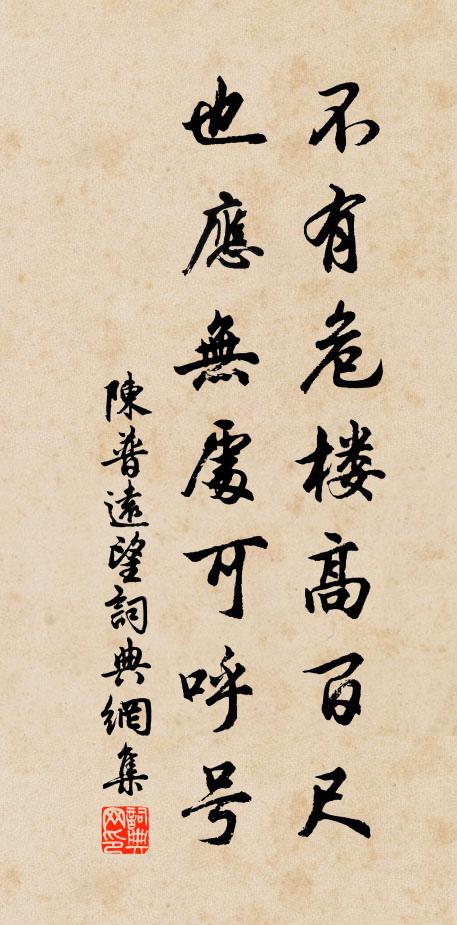 不有危楼高百尺
也應無處可呼号
陳普遠望詞典網集
詞典网印